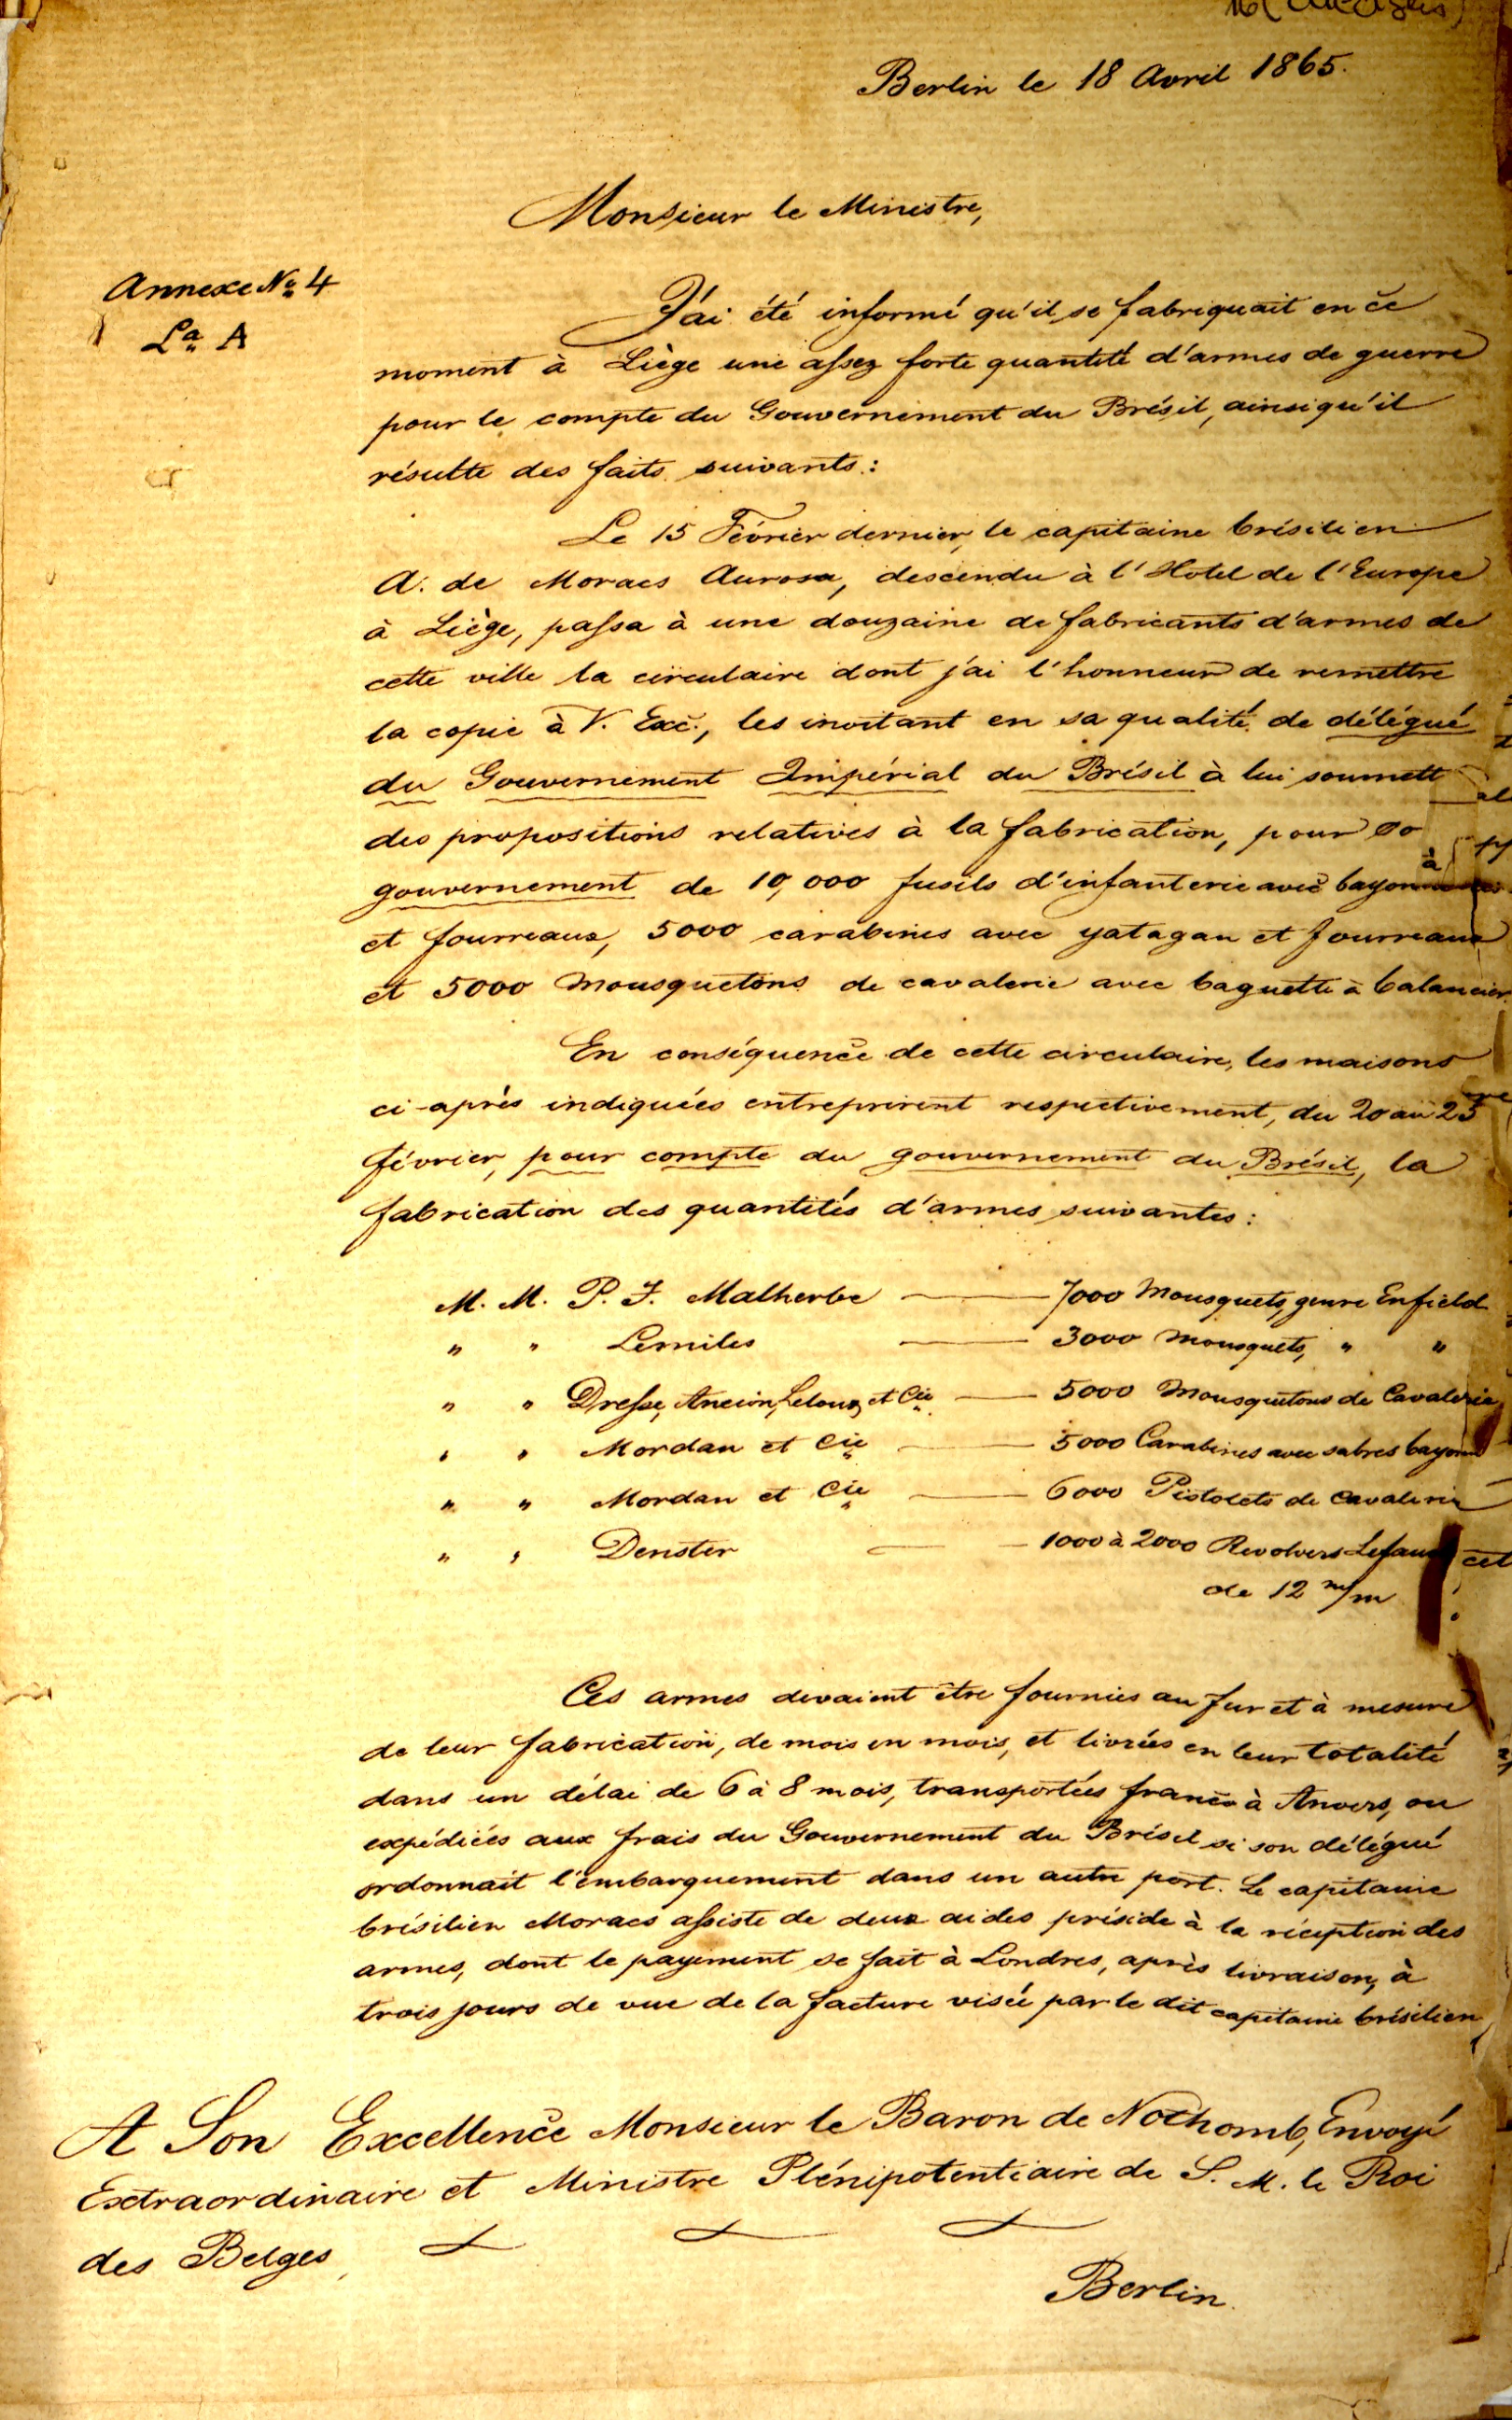 Berlin le 18 Avril 1865.
Monsieur le Ministre,
Annexe No 4
La A
J'ai été informé qu'il se fabriquait en ce
moment à Liège une assez forte quantité d'armes de guerre
pour le compte du Gouvernement du Brésil, ainsi qu'il
résulte des faits suivants:
Le 15 Février dernier, le capitaine brésilien
A. de Moraes Aurosa, descendu à l'Hotel de l'Europe
à Liège, passa à une douzaine de fabricants d'armes de
cette ville la circulaire dont j'ai l'honneur de remettre
la copie à V. Exc., les invitant en sa qualité de délégué
du Gouvernement Impérial du Brésil à lui soumett
des propositions relatives à la fabrication, pour so
gouvernement de 10,000 fusils d'infanterie avec bayonn
et fourreaux, 5000 carabines avec yatagan et fourreaux
et 5000 Mousquetons de cavalerie avec baguette à balancier.
En conséquence de cette circulaire, les maisons
ci-après indiquées entreprirent respectivement, du 20 au 25
février, pour compte du gouvernement du Brésil, la
fabrication des quantités d'armes suivantes:
M. M. P. J. Malherbe — 7000 Mousquets, genre Enfield
" " Lemiles — 3000 Mousquets, " "
" " Dresse, Ancion, Leloux, et Cie — 5000 Mousquetons de Cavalerie
" " Mordan et Cie — 5000 Carabines avec sabres bayonn
" " Mordan et Cie — 6000 Pistolets de Cavalerie
" " Denster — 1000 à 2000 Revolvers Lefauc
de 12 m/m
Ces armes devaient être fournies au fur et à mesure
de leur fabrication, de mois en mois, et livrées en leur totalité
dans un délai de 6 à 8 mois, transportées franco à Anvers, ou
expédiées aux frais du Gouvernement du Brésil si son délégué
ordonnait l'embarquement dans un autre port. Le capitaine
brésilien Moraes assiste de deux aides préside à la réception des
armes, dont le payement se fait à Londres, après livraison, à
trois jours de vue de la facture visée par le dit capitaine brésilien
A Son Excellence Monsieur le Baron de Nothomb, Envoyé
Extraordinaire et Ministre Plénipotentiaire de S. M. le Roi
des Belges,
Berlin.